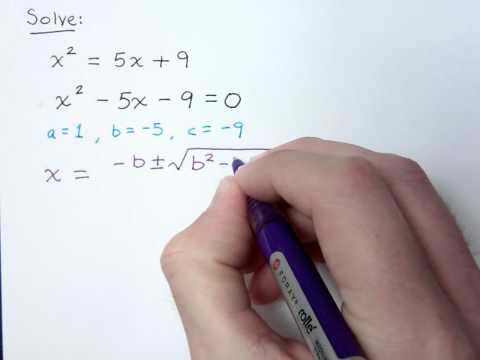 Solve:
x² = 5x + 9
x² - 5x - 9 = 0
a = 1 , b = -5 , c = -9
x = -b ± √b² -